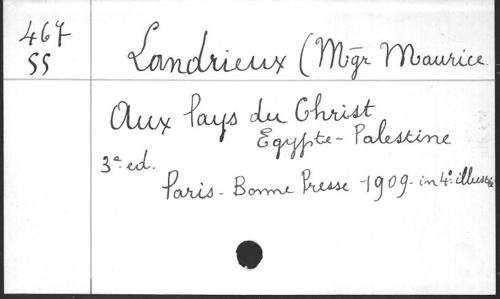 467
SS
Landrieux (Mgr Maurice.
Aux Pays du Christ
Egypte - Palestine
3e ed.
Paris - Bonne Presse - 1909 - in 4°. illustré